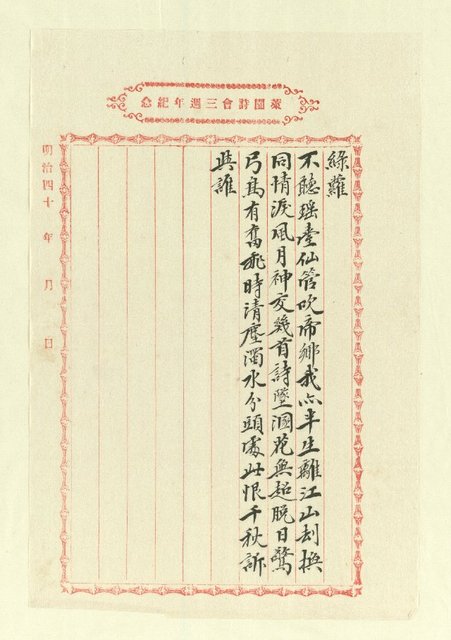 萊園詩會三週年紀念
綠蘿
不聽瑤臺仙管吹帝鄉我亦半生離江山刦換
同情淚風月神交幾首詩墜溷花無超脫日驚
弓鳥有奮飛時清塵濁水分頭處此恨千秋訴
與誰
明治四十 年 月 日